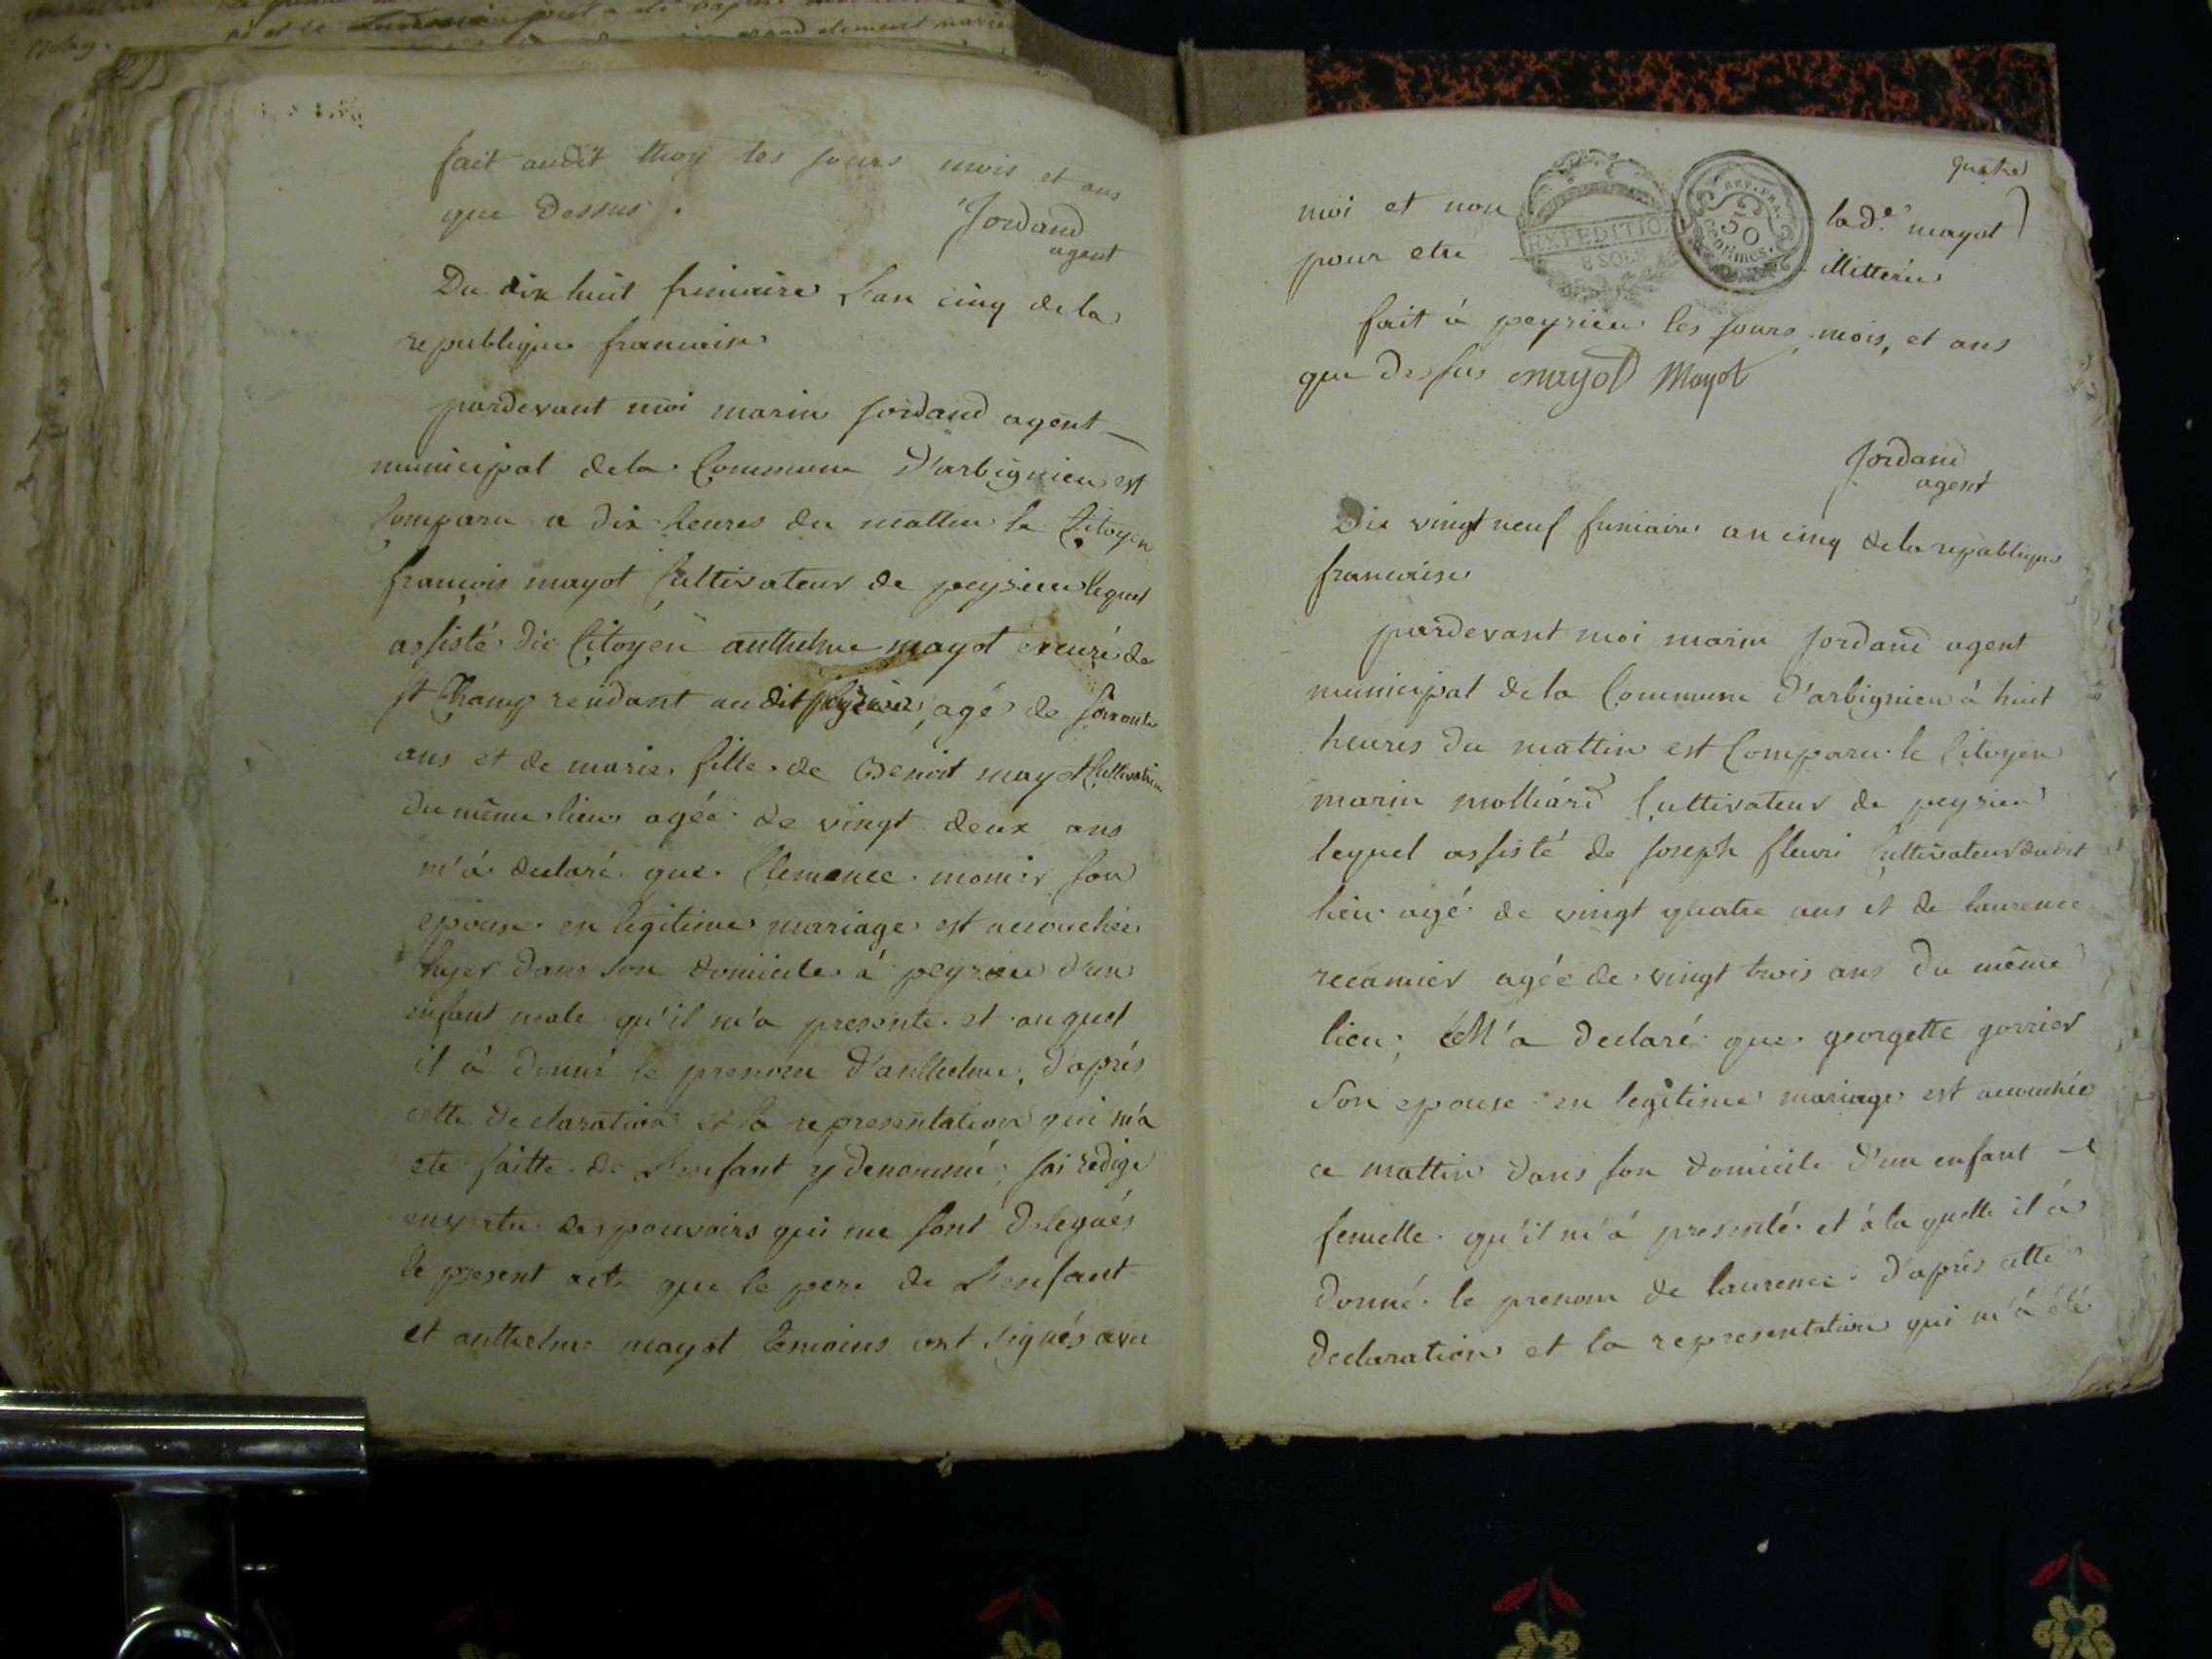 fait audit thoy les jours mois et ans
que dessus.
Jordand
agent
Du dix huit frimaire L'an cinq de la
republique francaise
pardevant moi marin Jordand agent
municipal de la Commune D'arbignieu est
Comparu a dix heures du mattin le Citoyen
françois mayot Cultivateur de peyrieu lequel
assisté du Citoyen anthelme mayot curé de
st Champ rendant au dit peyrieu, agé de soixante
ans et de marie fille de Benoit mayot Cultivateur
du même lieu agée de vingt deux ans
m'à declaré que Clemence monier son
epouse en legitime mariage est accouchée
hyer dans son domicile à peyrieu d'un
enfant male qu'il m'a presente et auquel
il à donné le prenom d'anthelme, d'aprés
cette declaration et la representation qui m'a
ete faitte de L'enfant y denommé, jai redigé
en vertu des pouvoirs qui me sont delegués
le present acte que le pere de L'enfant
et anthelme mayot temoins ont signés avec
quatre
moi et non la de. mayot
pour etre illitterée
EXPEDITION
8 SOLS
REP. FRA.
50
centimes.
fait à peyrieu les jours mois, et ans
que dessus mayot Mayot
Jordand
agent
Du vingt neuf frimaire an cinq de la republique
francaise
pardevant moi marin Jordand agent
municipal de la Commune d'arbignieu à huit
heures du mattin est Comparu le Citoyen
marin molliard Cultivateur de peyrieu
lequel assisté de joseph fleuri Cultivateur dudit
lieu agé de vingt quatre ans et de laurence
recamier agée de vingt trois ans du même
lieu, M'a declaré que georgette gorrier
Son epouse en legitime mariage est accouchée
ce mattin dans son domicile d'un enfant
femelle qu'il m'à presenté et à la quelle il à
donné le prenom de laurence d'aprés cette
declaration et la representation qui m'à été